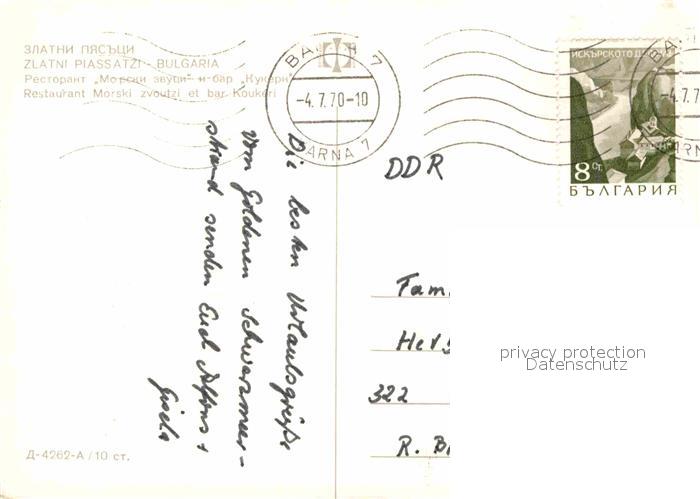 ЗЛАТНИ ПЯСЪЦИ
ZLATNI PIASSATZI - BULGARIA
Ресторант „Морски звуци" и бар „Кукери"
Restaurant Morski zvoutzi et bar Koukeri
-4.7.70-10
VARNA 7
ИСКЪРСКОТО
8 СТ.
БЪЛГАРИЯ
Die besten Urlaubsgrüße
Vom Goldenen Schwarzmeer-
strand senden Euch Alfons +
Gisela
DDR
Fam.
322
R. B
privacy protection
Datenschutz
Д-4262-А / 10 ст.